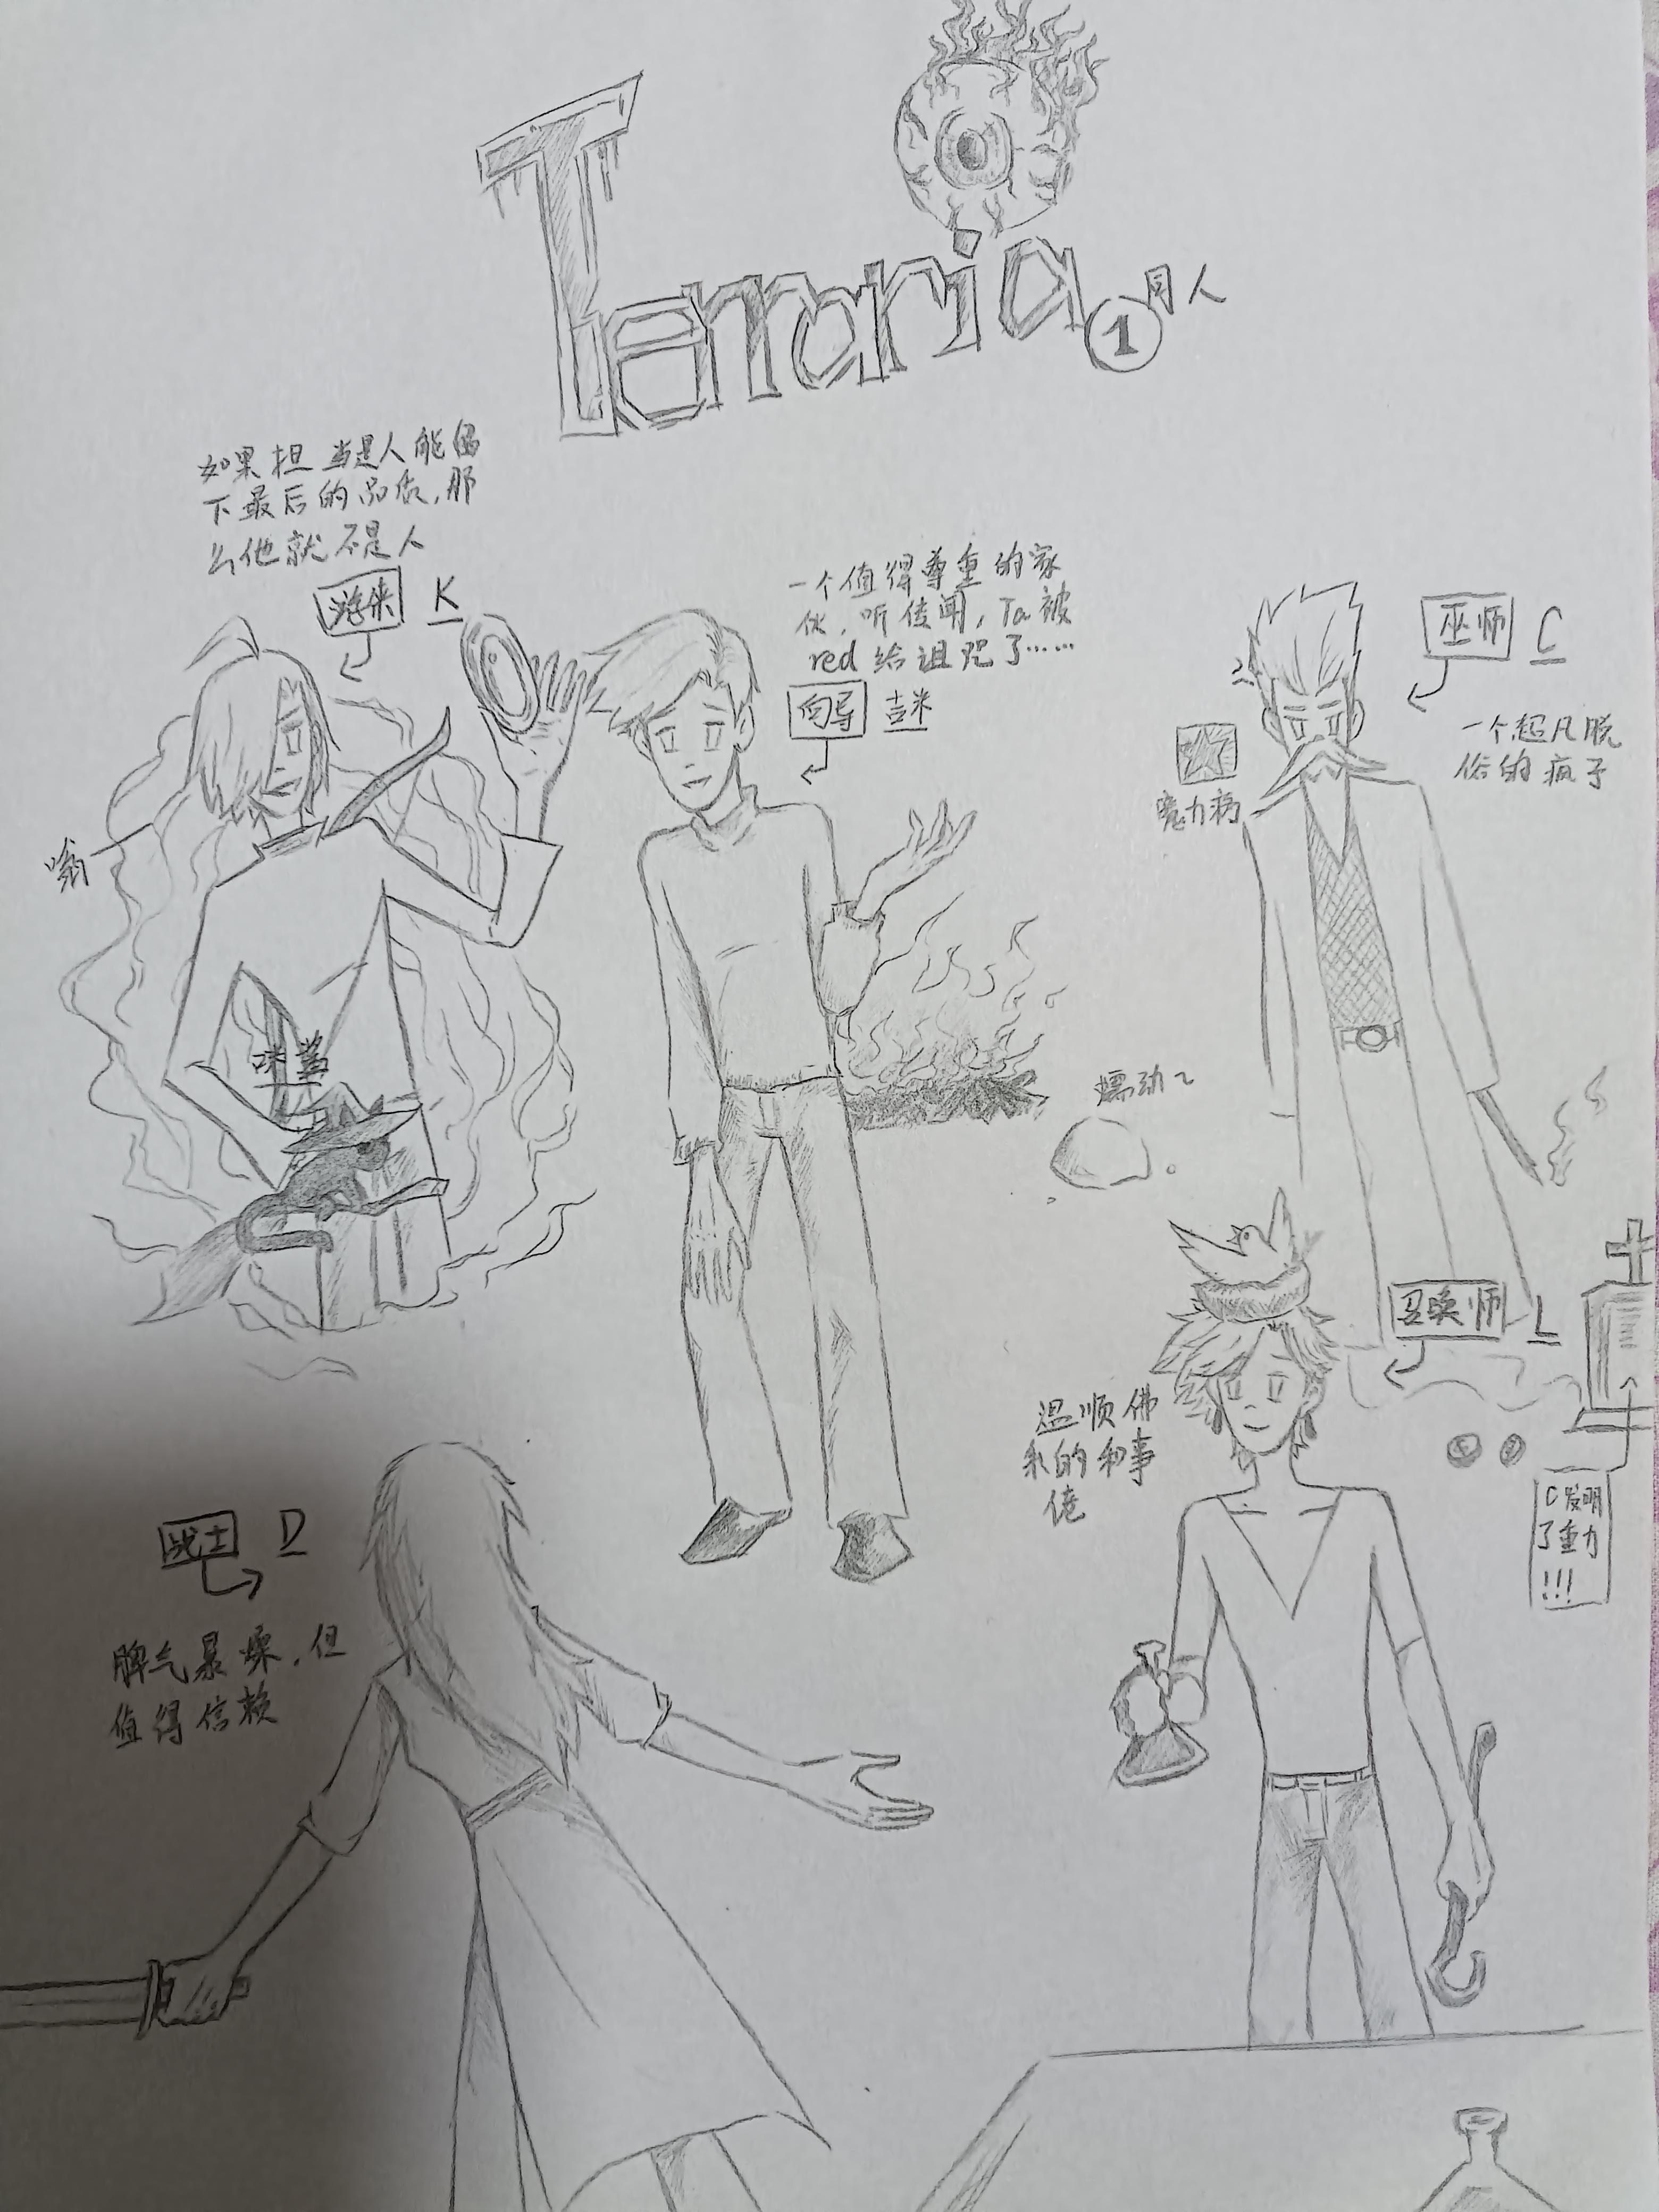 Terraria
①同人
如果担当是人能留
下最后的品质,那
么他就不是人
游侠 K
一个值得尊重的家
伙,听传闻,Ta被
red 给诅咒了……
向导 吉米
巫师 C
一个超凡脱
俗的疯子
魔力病
嗡
咪蓝
蠕动~
召唤师 L
温顺佛
系的和事
佬
C发明
了重力
!!!
战士 D
脾气暴燥,但
值得信赖